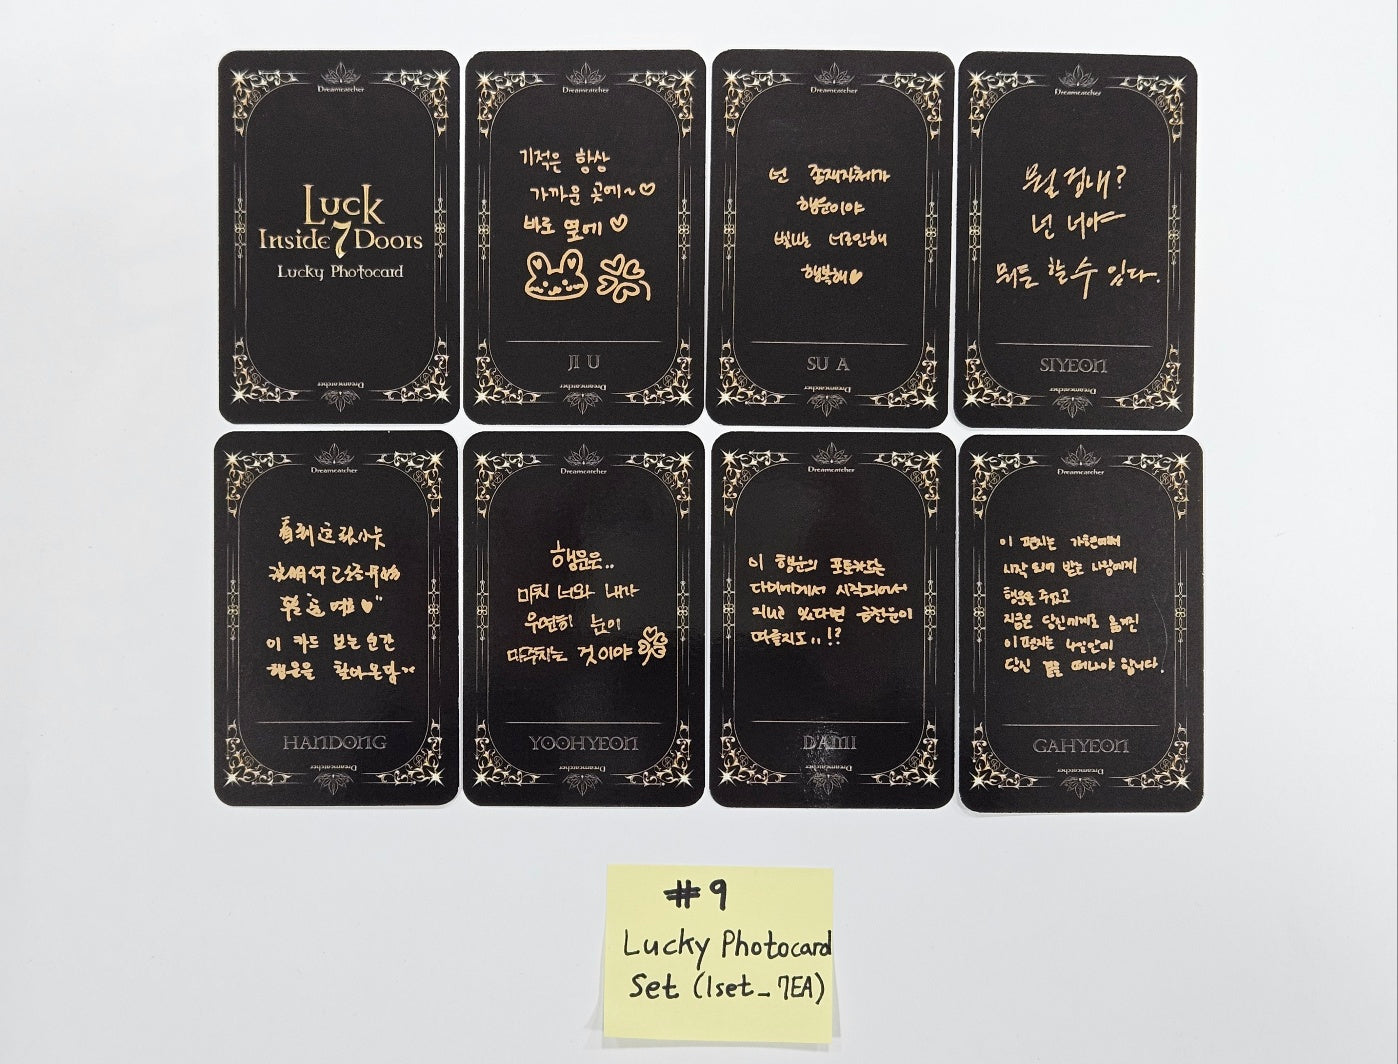 Dreamcatcher
Luck
Inside 7 Doors
Lucky Photocard
Dreamcatcher
Dreamcatcher
기적은 항상
가까운 곳에~♡
바로 옆에 ♡
JI U
Dreamcatcher
Dreamcatcher
넌 존재자체가
행운이야
빛나는 너로인해
행복해♥
SU A
Dreamcatcher
Dreamcatcher
뭘 겁내?
넌 너야
뭐든 할 수 있다.
SIYEON
Dreamcatcher
Dreamcatcher
看到这张小卡
说明你已经开始
幸运啦♥
이 카드 보는 순간
행운을 찾아온당~
HANDONG
Dreamcatcher
Dreamcatcher
행운은..
마치 너와 내가
우연히 눈이
마주치는 것이야
YOOHYEON
Dreamcatcher
Dreamcatcher
이 행운의 포토카드는
다미에게서 시작되어서
지니고 있다면 금전운이
따를지도..!?
DAMI
Dreamcatcher
Dreamcatcher
이 편지는 가현에게서
시작되어 받는 사람에게
행운을 주었고
지금은 당신에게로 옮겨진
이 편지는 4일안에
당신 곁을 떠나야 합니다.
GAHYEON
Dreamcatcher
#9
Lucky Photocard
Set (1set_7EA)